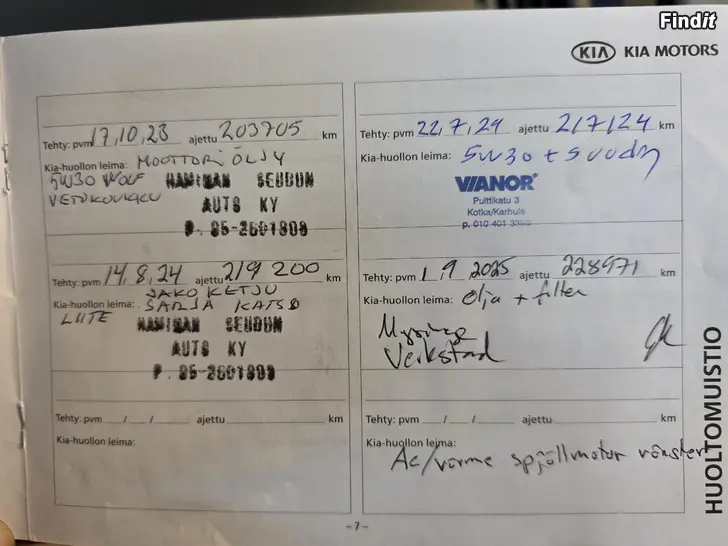 Findit
KIA KIA MOTORS
Tehty: pvm 17,10,23 ajettu 203705 km
Kia-huollon leima: MOOTTORI ÖLJY
5W30 WOLF
HAMINAN SEUDUN
AUTO KY
Tehty: pvm 22,7,24 ajettu 217124 km
Kia-huollon leima: 5W30 + Suodn
VIANOR
Pulttikatu 3
Kotka/Karhula
p. 010 401
Tehty: pvm 14,8,24 ajettu 219 200 km
JAKO KETJU
Kia-huollon leima: SARJA KATSO
LIITE
HAMINAN SEUDUN
AUTO KY
Tehty: pvm 1 9 2025 ajettu 228971 km
Kia-huollon leima: Olja + filter
Verkstad
Tehty: pvm / / ajettu km
Kia-huollon leima:
Tehty: pvm / / ajettu km
Kia-huollon leima:
Ac/värme spjällmotor vänster
HUOLTOMUISTIO
– 7 –